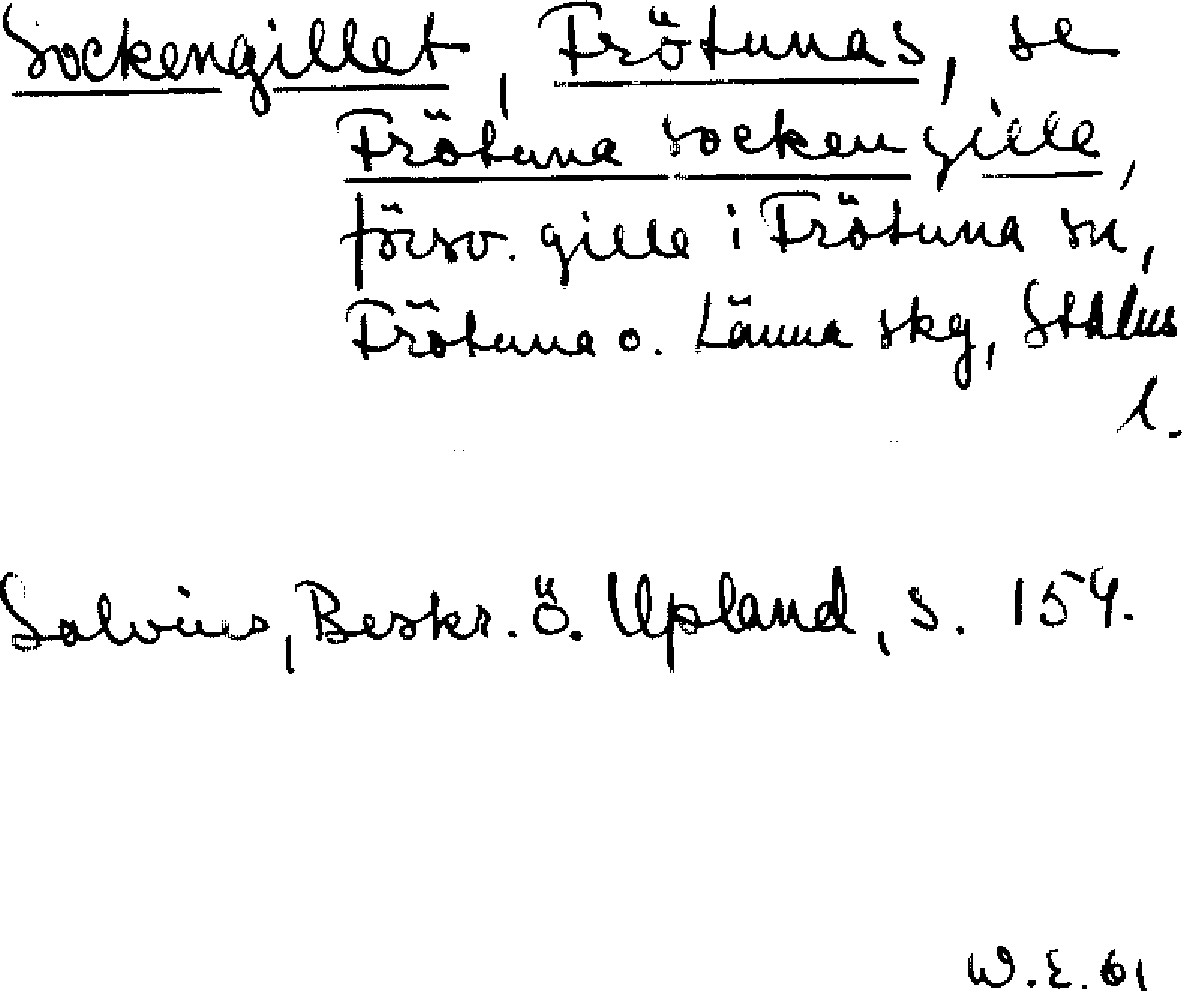 Sockengillet, Frötunas, se
Frötuna sockengille,
försv. gille i Frötuna sn,
Frötuna o. Länna skg, Sthlms
l.
Salvius, Beskr. ö. Upland, s. 154.
W.E. 61